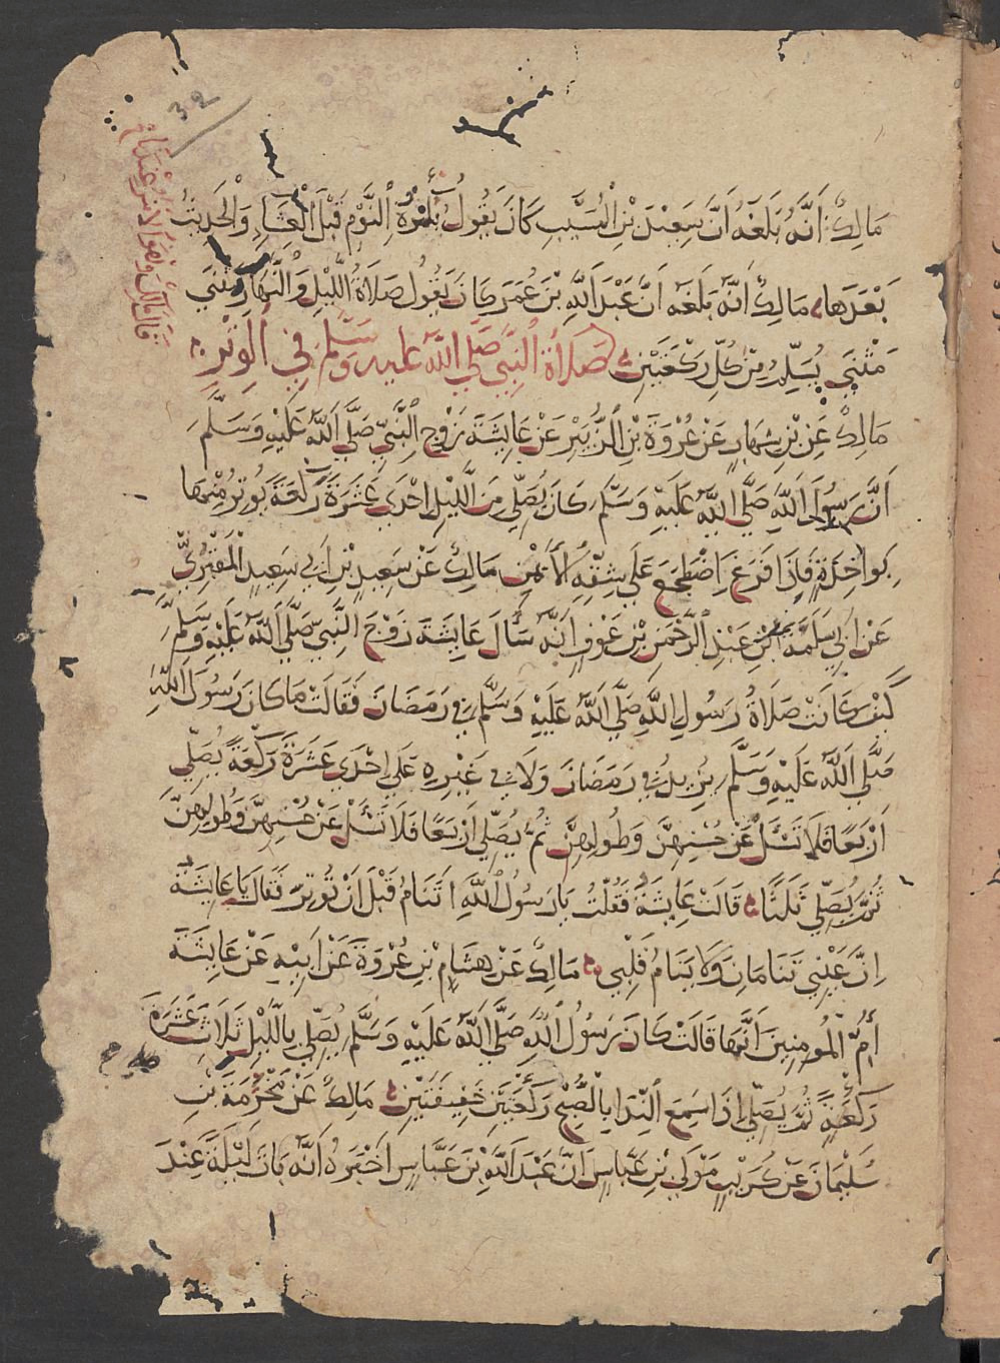 39
مَالِكٌ أَنَّهُ بَلَغَهُ أَنَّ سَعِيْدَ بْنَ الْمُسَيَّبِ كَانَ يَقُولُ يُكْرَهُ النَّوْمُ قَبْلَ الْعِشَاءِ وَالْحَدِيثُ
بَعْدَهَا مَالِكٌ أَنَّهُ بَلَغَهُ أَنَّ عَبْدَ اللَّهِ بْنَ عُمَرَ كَانَ يَقُولُ صَلَاةُ اللَّيْلِ وَالنَّهَارِ مَثْنَي
مَثْنَي يُسَلِّمُ مِنْ كُلِّ رَكْعَتَيْنِ صَلَاةُ النَّبِيِّ صَلَّي اللَّهُ عليه وَسَلَّمَ فِي الْوِتْرِ
مَالِكٌ عَنِ بْنِ شِهَابٍ عَنْ عُرْوَةَ بْنِ الزُّبَيْرِ عَنْ عَايِشَةَ زَوْجِ النَّبِيِّ صَلَّي اللَّهُ عَلَيْهِ وَسَلَّمَ
أَنَّ رَسُولَ اللَّهِ صَلَّي اللَّهُ عَلَيْهِ وَسَلَّمَ كَانَ يُصَلِّي مِنَ اللَّيْلِ احْدَي عَشْرَةَ رَكْعَةً يُوتِرُ مِنْهَا
بِوَاحِدَةٍ فَإِذَا فَرَغَ اضْطَجَعَ عَلَي شِقِّهِ الأَيْمَنِ مَالِكٌ عَنْ سَعِيدِ بْنِ أَبِي سَعِيدٍ الْمَقْبُرِيِّ
عَنْ أَبِي سَلَمَةَ بْنِ عَبْدِ الرَّحْمَنِ بْنِ عَوْفٍ أَنَّهُ سَأَلَ عَايِشَةَ زَوْجَ النَّبِيِّ صَلَّي اللَّهُ عَلَيْهِ وَسَلَّمَ
كَيْفَ كَانَتْ صَلَاةُ رَسُولِ اللَّهِ صَلَّي اللَّهُ عَلَيْهِ وَسَلَّمَ فِي رَمَضَانَ فَقَالَتْ مَا كَانَ رَسُولُ اللَّهِ
صَلَّي اللَّهُ عَلَيْهِ وَسَلَّمَ يَزِيدُ فِي رَمَضَانَ وَلَا فِي غَيْرِهِ عَلَي إِحْدَي عَشَرَةَ رَكْعَةً يُصَلِّي
أَرْبَعًا فَلَا تَسْئَلْ عَنْ حُسْنِهِنَّ وَطُولِهِنَّ ثُمَّ يُصَلِّي أَرْبَعًا فَلَا تَسْئَلْ عَنْ حُسْنِهِنَّ وَطُولِهِنَّ
ثُمَّ يُصَلِّي ثَلَثًا قَالَتْ عَايِشَةُ فَقُلْتُ يَا رَسُولَ اللَّهِ اتَنَامُ قَبْلَ أَنْ تُوتِرَ فَقَالَ يَا عَايِشَةُ
إِنَّ عَيْنَيَّ تَنَامَانِ وَلَا يَنَامُ قَلْبِي مَالِكٌ عَنْ هِشَامِ بْنِ عُرْوَةَ عَنْ أَبِيْهِ عَنْ عَايِشَةَ
أُمِّ الْمُومِنِينَ أَنَّهَا قَالَتْ كَانَ رَسُولُ اللَّهِ صَلَّي اللَّهُ عَلَيْهِ وَسَلَّمَ يُصَلِّي بِاللَّيْلِ ثَلَاثَ عَشَرَةَ
رَكْعَةً ثُمَّ يُصَلِّي إِذَا سَمِعَ النِّدَا بِالصُّبْحِ رَكْعَتَيْنِ خَفِيفَتَيْنِ مَالِكٌ عَنْ مَخْرَمَةَ بْنِ
سُلَيْمَانَ عَنْ كُرَيْبٍ مَوْلَي بْنِ عَبَّاسٍ أَنَّ عَبْدَ اللَّهِ بْنَ عَبَّاسٍ أَخْبَرَهُ أَنَّهُ بَاتَ لَيْلَةً عِنْدَ
قَالَ مَالِكٌ وَهُوَ الأَمْرُ عِنْدَنَا